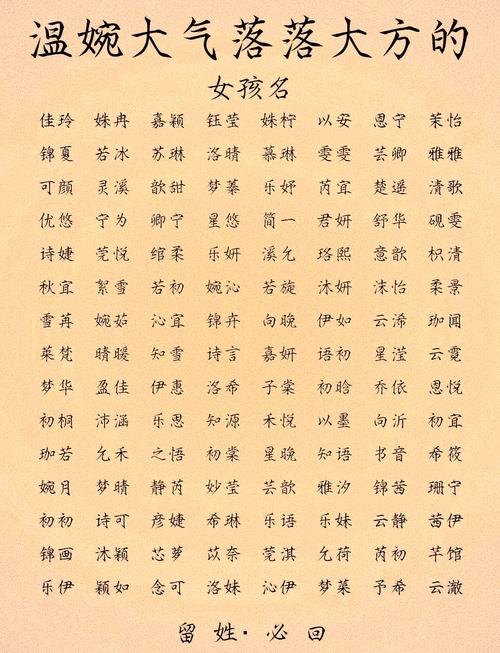 温婉大气落落大方的
女孩名
佳玲 姝冉 嘉颖 钰莹 姝柠 以安 恩宁 茉怡
锦夏 若冰 苏琳 洛晴 慕琳 雯雯 芸卿 雅雅
可颜 灵溪 歆甜 梦蓁 乐妤 芮宜 楚遥 清歌
优悠 宁为 卿宁 星悠 简一 君妍 舒华 砚雯
诗婕 莞悦 绾柔 乐妍 溪允 珞熙 意歆 枳清
秋宜 絮雪 若初 婉沁 若旋 沐妍 沫怡 柔景
雪苒 婉茹 沁宜 锦卉 向晚 伊如 云浠 珈闻
莱梵 晴暖 知雪 诗言 嘉妍 语初 星滢 云霓
梦华 盈佳 伊惠 洛希 子棠 初晗 乔依 恩悦
初桐 沛涵 乐思 知源 禾悦 以墨 向沂 初宜
珈若 允禾 之悟 初棠 星晚 知语 书音 希筱
婉月 梦晴 静芮 妙莹 芸歆 雅汐 锦茜 珊宁
初初 诗可 彦婕 希琳 乐语 乐妹 云静 茜伊
锦画 沐颖 芯萝 苡奈 莞淇 允荷 芮初 芊馆
乐伊 颖如 念可 洛妹 沁伊 梦菜 予希 云澈
留姓·必回